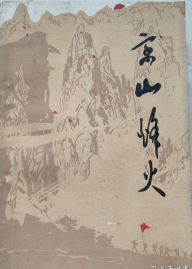 京山烽火